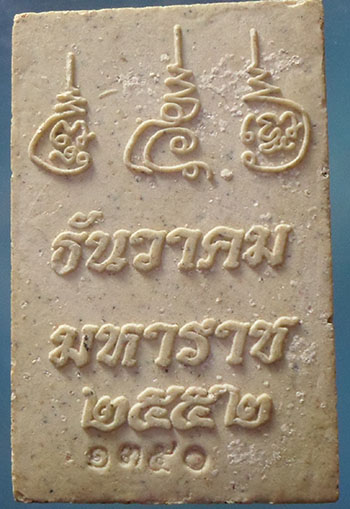 ธันวาคม
มหาราช
๒๕๕๒
๑๓๔๐